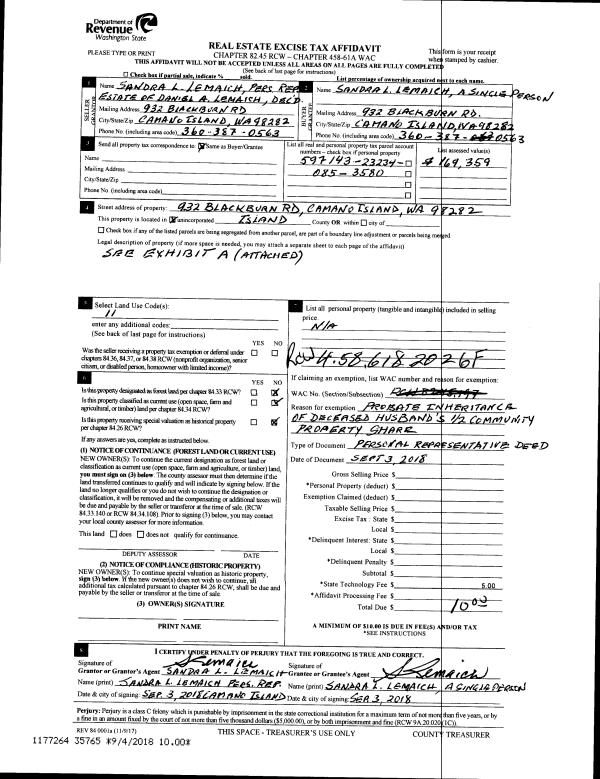 Department of
Revenue
Washington State
REAL ESTATE EXCISE TAX AFFIDAVIT
PLEASE TYPE OR PRINT
CHAPTER 82.45 RCW – CHAPTER 458-61A WAC
This form is your receipt
when stamped by cashier.
THIS AFFIDAVIT WILL NOT BE ACCEPTED UNLESS ALL AREAS ON ALL PAGES ARE FULLY COMPLETED
(See back of last page for instructions)
Check box if partial sale, indicate % sold.
List percentage of ownership acquired next to each name.
1
SELLER GRANTOR
Name SANDRA L. LEMAICH, PERS. REP
ESTATE OF DANIEL A. LEMAICH, DEC'D.
Mailing Address 932 BLACKBURN RD
City/State/Zip CAMANO ISLAND, WA 98282
Phone No. (including area code) 360-387-0563
2
BUYER GRANTEE
Name SANDRA L. LEMAICH, A SINGLE PERSON
Mailing Address 932 BLACKBURN RD.
City/State/Zip CAMANO ISLAND, WA 98282
Phone No. (including area code) 360-387-0563
3
Send all property tax correspondence to: Same as Buyer/Grantee
Name
Mailing Address
City/State/Zip
Phone No. (including area code)
List all real and personal property tax parcel account
numbers – check box if personal property
597143-23234-
085-3580
List assessed value(s)
$169,359
4
Street address of property: 932 BLACKBURN RD, CAMANO ISLAND, WA 98282
This property is located in unincorporated ISLAND County OR within city of
Check box if any of the listed parcels are being segregated from another parcel, are part of a boundary line adjustment or parcels being merged.
Legal description of property (if more space is needed, you may attach a separate sheet to each page of the affidavit)
SEE EXHIBIT A (ATTACHED)
5
Select Land Use Code(s):
11
enter any additional codes:
(See back of last page for instructions)
YES NO
Was the seller receiving a property tax exemption or deferral under
chapters 84.36, 84.37, or 84.38 RCW (nonprofit organization, senior
citizen, or disabled person, homeowner with limited income)?
6
YES NO
Is this property designated as forest land per chapter 84.33 RCW?
Is this property classified as current use (open space, farm and
agricultural, or timber) land per chapter 84.34 RCW?
Is this property receiving special valuation as historical property
per chapter 84.26 RCW?
If any answers are yes, complete as instructed below.
(1) NOTICE OF CONTINUANCE (FOREST LAND OR CURRENT USE)
NEW OWNER(S): To continue the current designation as forest land or
classification as current use (open space, farm and agriculture, or timber) land,
you must sign on (3) below. The county assessor must then determine if the
land transferred continues to qualify and will indicate by signing below. If the
land no longer qualifies or you do not wish to continue the designation or
classification, it will be removed and the compensating or additional taxes will
be due and payable by the seller or transferor at the time of sale. (RCW
84.33.140 or RCW 84.34.108). Prior to signing (3) below, you may contact
your local county assessor for more information.
This land does does not qualify for continuance.
DEPUTY ASSESSOR DATE
(2) NOTICE OF COMPLIANCE (HISTORIC PROPERTY)
NEW OWNER(S): To continue special valuation as historic property,
sign (3) below. If the new owner(s) does not wish to continue, all
additional tax calculated pursuant to chapter 84.26 RCW, shall be due and
payable by the seller or transferor at the time of sale.
(3) OWNER(S) SIGNATURE
PRINT NAME
7
List all personal property (tangible and intangible) included in selling
price.
N/A
458.61B 202 6F
If claiming an exemption, list WAC number and reason for exemption:
WAC No. (Section/Subsection)
Reason for exemption PROBATE INHERITANCE
OF DECEASED HUSBAND'S 1/2 COMMUNITY
PROPERTY SHARE
Type of Document PERSONAL REPRESENTATIVE DEED
Date of Document SEPT 3, 2018
Gross Selling Price $
*Personal Property (deduct) $
Exemption Claimed (deduct) $
Taxable Selling Price $
Excise Tax : State $
Local $
*Delinquent Interest: State $
Local $
*Delinquent Penalty $
Subtotal $
*State Technology Fee $ 5.00
*Affidavit Processing Fee $
Total Due $ 10.00
A MINIMUM OF $10.00 IS DUE IN FEE(S) AND/OR TAX
*SEE INSTRUCTIONS
8
I CERTIFY UNDER PENALTY OF PERJURY THAT THE FOREGOING IS TRUE AND CORRECT.
Signature of
Grantor or Grantor's Agent SANDRA L. LEMAICH
Name (print) SANDRA L. LEMAICH PERS. REP.
Date & city of signing: SEP. 3, 2018 CAMANO ISLAND
Signature of
Grantee or Grantee's Agent
Name (print) SANDRA L. LEMAICH, A SINGLE PERSON
Date & city of signing: SEP 3, 2018
Perjury: Perjury is a class C felony which is punishable by imprisonment in the state correctional institution for a maximum term of not more than five years, or by
a fine in an amount fixed by the court of not more than five thousand dollars ($5,000.00), or by both imprisonment and fine (RCW 9A.20.020(1C)).
REV 84 0001a (11/9/17)
THIS SPACE - TREASURER'S USE ONLY
COUNTY TREASURER
1177264 35765 *9/4/2018 10.00*